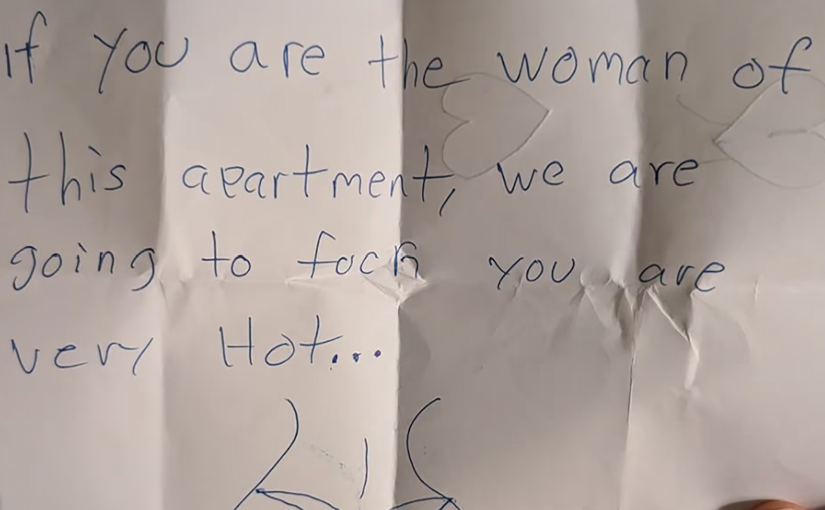 if you are the woman of
this apartment, we are
going to fock you are
very Hot...